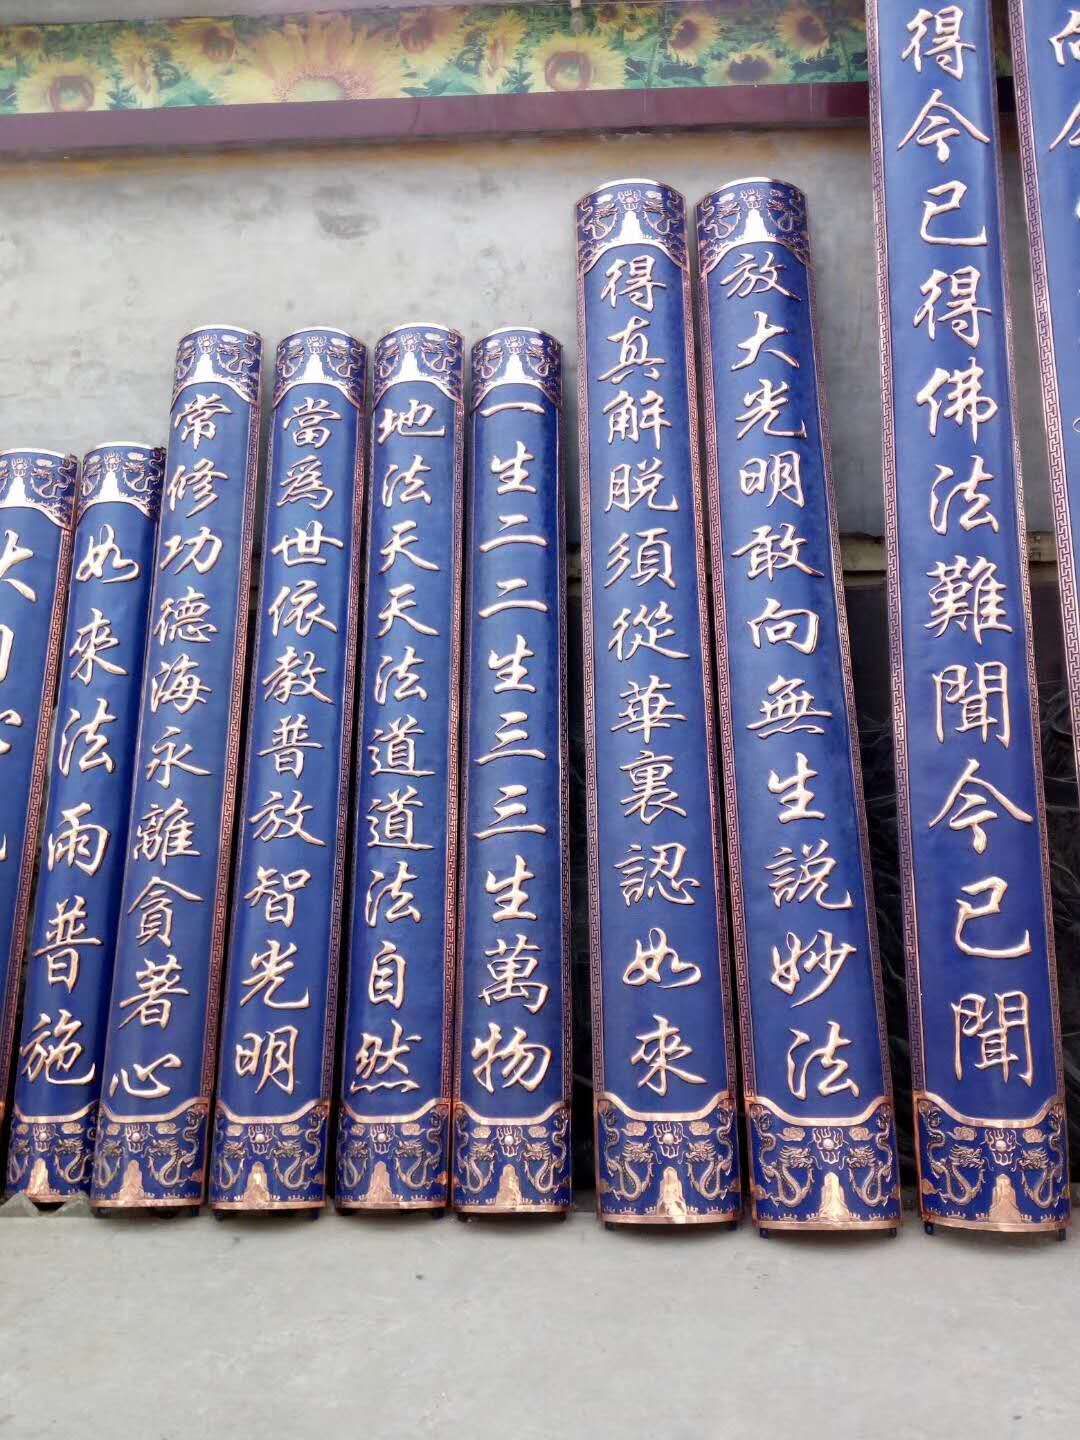 得今已得佛法難聞今已聞
放大光明敢向無生説妙法
得真解脱須從華裏認如來
一生二二生三三生萬物
地法天天法道道法自然
當為世依教普放智光明
常修功德海永離貪著心
如來法雨普施
大